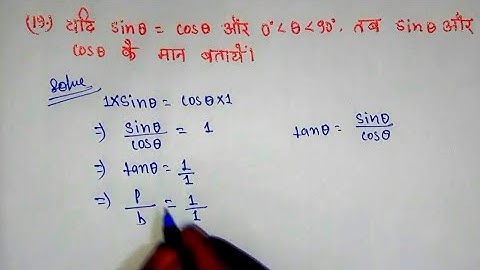 (19.) यदि sinθ = cosθ और 0° < θ < 90°, तब sinθ और
cosθ के मान बतायें।
Solve
1×sinθ = cosθ×1
⇒ sinθ/cosθ = 1
tanθ = sinθ/cosθ
⇒ tanθ = 1/1
⇒ p/b = 1/1